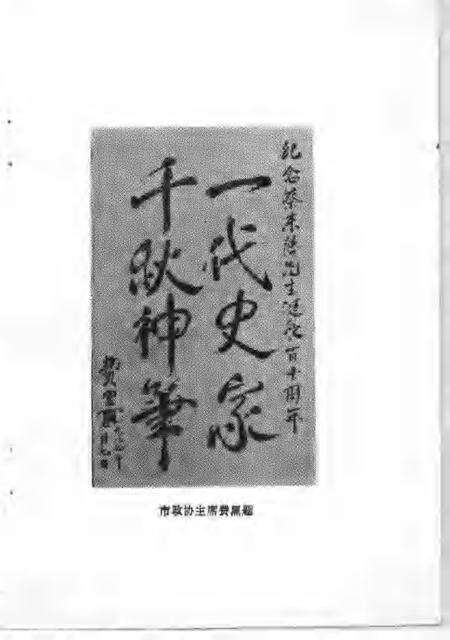 纪念蔡东藩先生诞辰百十周年
一代史家
千秋神筆
費黑
市政协主席费黑题